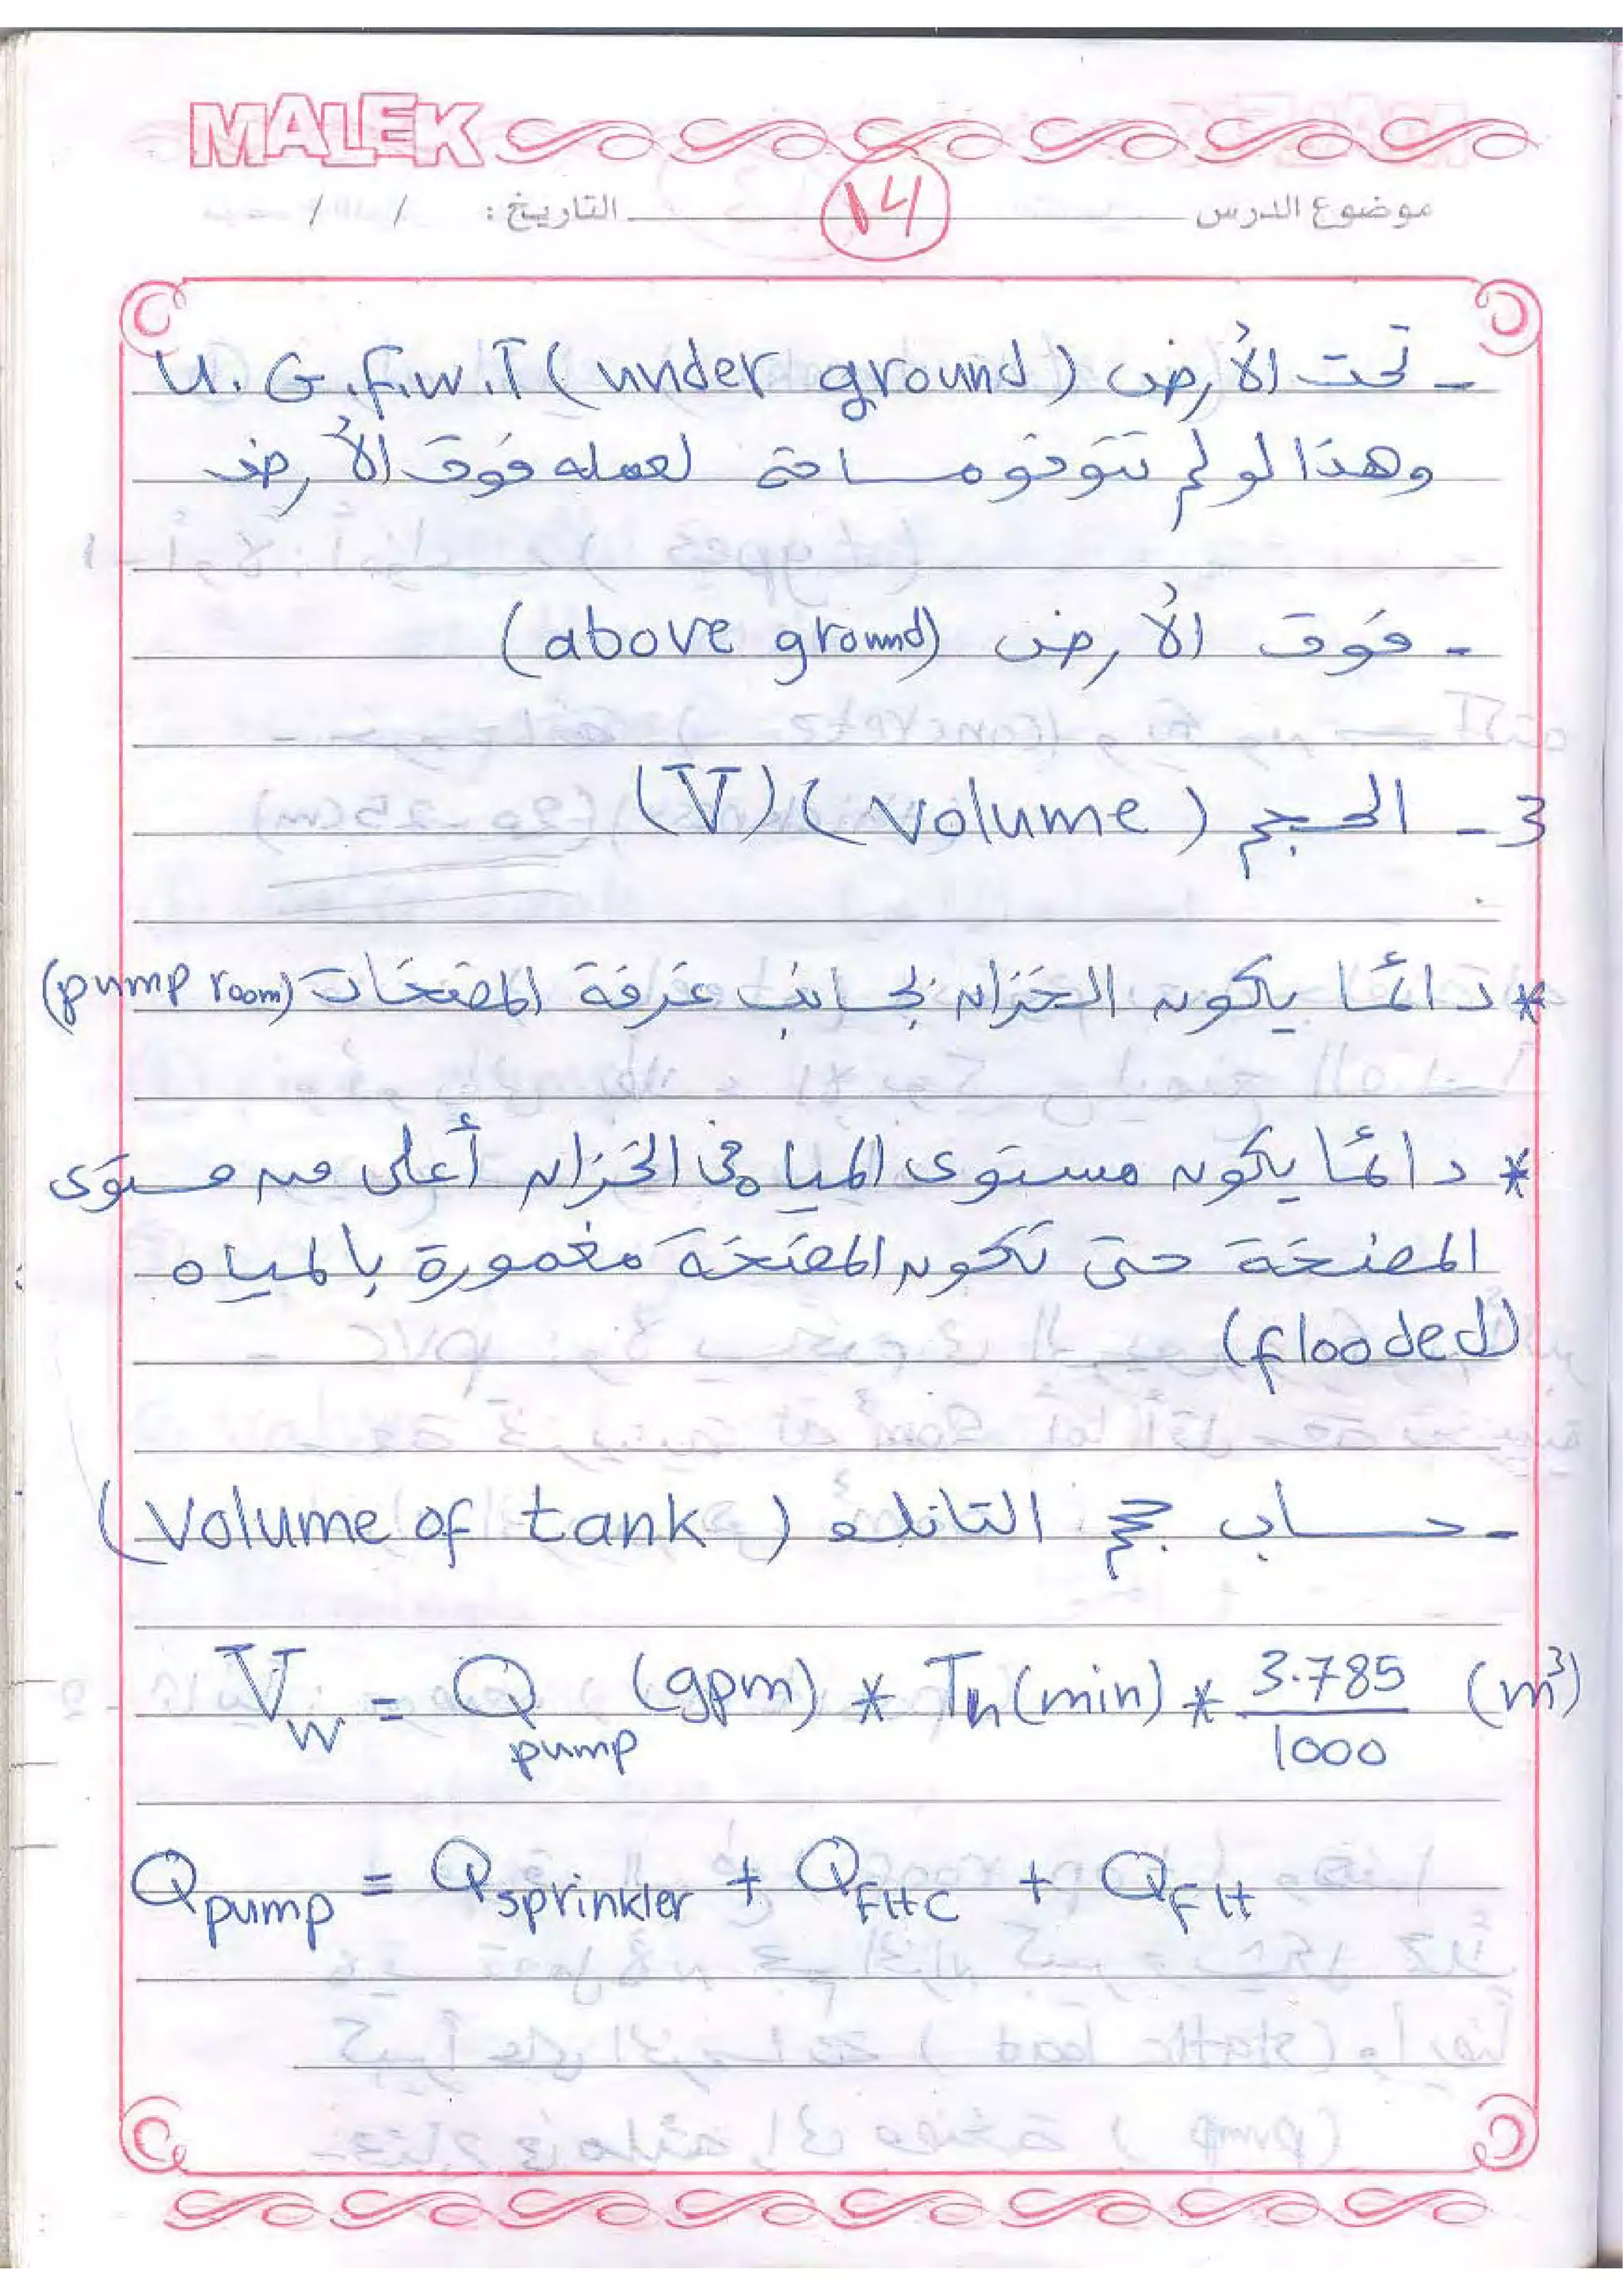 MALEK
موضوع الدرس 14 التاريخ: / /
- تحت الأرض U.G.F.W.T (under ground)
وهذا لو لم تتوفر مساحة لعمله فوق الأرض
- فوق الأرض (above ground)
3 - الحجم (Volume) (V)
* دائما يكون الخزان بجانب غرفة المضخات (pump room)
* دائما يكون مستوى المياه فى الخزان أعلى من مستوى
المضخة حتى تكون المضخة مغمورة بالمياه
(flooded)
- حساب حجم التانك (Volume of tank)
Vw = Qpump (gpm) * Tn (min) * 3.785/1000 (m³)
Qpump = Qsprinkler + QFHC + QFH